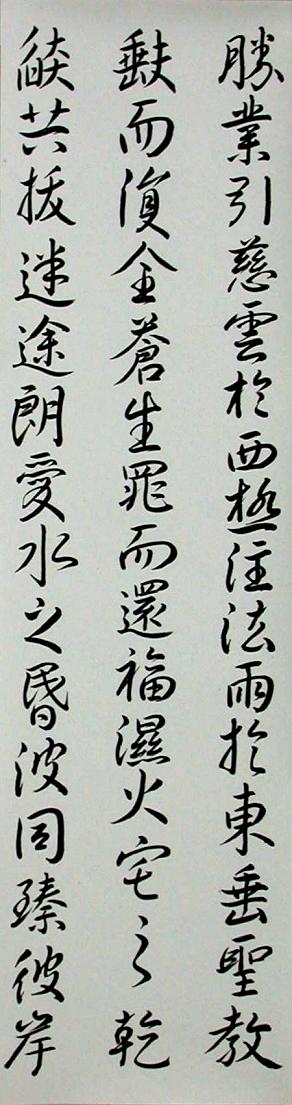 勝業引慈雲於西極注法雨於東垂聖教
缺而復全蒼生罪而還福濕火宅之乾
焰共拔迷途朗愛水之昏波同臻彼岸